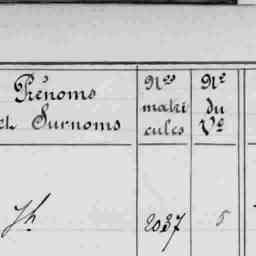 Prénoms
et Surnoms
Nos
matri
cules
No
du
Vo
Jh
2037
5